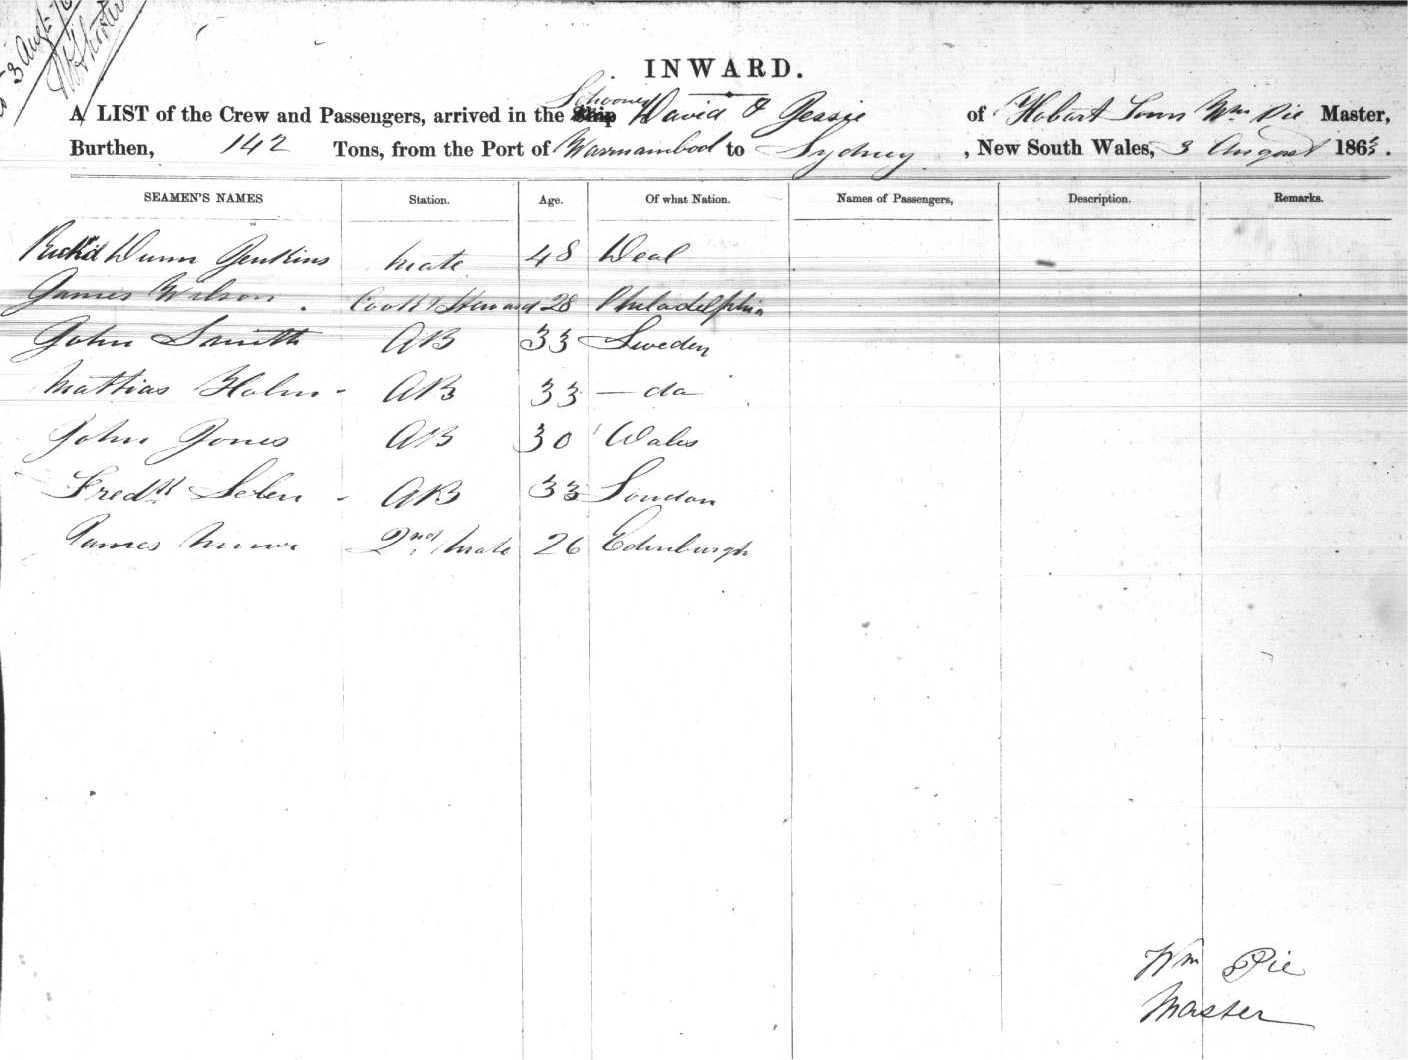 3 Augt
INWARD.
A LIST of the Crew and Passengers, arrived in the Ship Schooner David & Jessie of Hobart Town Wm Pie Master,
Burthen, 142 Tons, from the Port of Warrnambool to Sydney, New South Wales, 3 August 1863.
SEAMEN'S NAMES Station. Age. Of what Nation. Names of Passengers, Description. Remarks.
Richd Dunn Jenkins Mate 48 Deal
James Wilson Cook & Steward 28 Philadelphia
John Smith AB 33 Sweden
Mattias Holm - AB 33 — do
John Jones AB 30 Wales
Fredk - AB 33 London
James 2nd Mate 26 Edinburgh
Wm Pie
Master